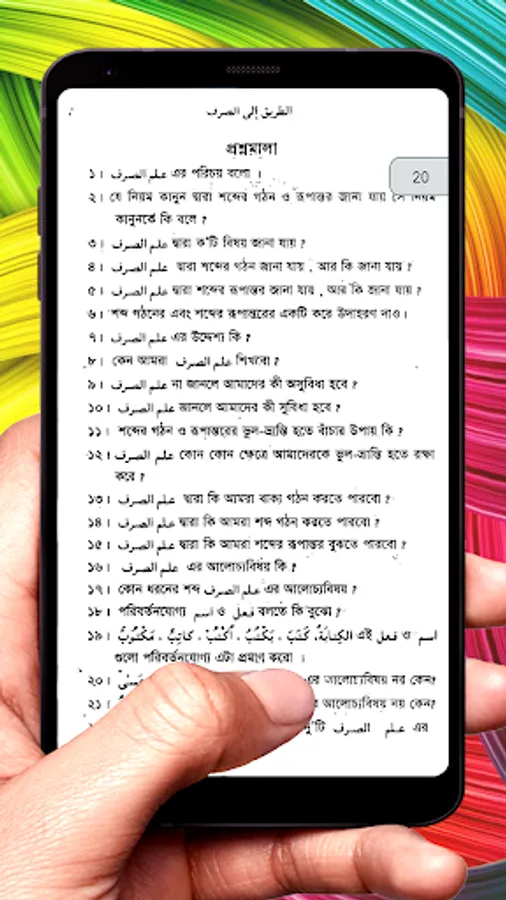 الطريق إلى الصرف
প্রশ্নমালা
20
১। علم الصرف এর পরিচয় বলো ।
২। যে নিয়ম কানুন দ্বারা শব্দের গঠন ও রূপান্তর জানা যায় সে নিয়ম
কানুনকে কি বলে ?
৩। علم الصرف দ্বারা ক'টি বিষয় জানা যায় ?
৪। علم الصرف দ্বারা শব্দের গঠন জানা যায় , আর কি জানা যায় ?
৫। علم الصرف দ্বারা শব্দের রূপান্তর জানা যায় , আর কি জানা যায় ?
৬। শব্দ গঠনের এবং শব্দের রূপান্তরের একটি করে উদাহরণ দাও।
৭। علم الصرف এর উদ্দেশ্য কি ?
৮। কেন আমরা علم الصرف শিখবো ?
৯। علم الصرف না জানলে আমাদের কী অসুবিধা হবে ?
১০। علم الصرف জানলে আমাদের কী সুবিধা হবে ?
১১। শব্দের গঠন ও রূপান্তরের ভুল-ভ্রান্তি হতে বাঁচার উপায় কি ?
১২। علم الصرف কোন কোন ক্ষেত্রে আমাদেরকে ভুল-ভ্রান্তি হতে রক্ষা
করে ?
১৩। علم الصرف দ্বারা কি আমরা বাক্য গঠন করতে পারবো ?
১৪। علم الصرف দ্বারা কি আমরা শব্দ গঠন করতে পারবো ?
১৫। علم الصرف দ্বারা কি আমরা শব্দের রূপান্তর বুঝতে পারবো ?
১৬। علم الصرف এর আলোচ্যবিষয় কি ?
১৭। কোন ধরনের শব্দ علم الصرف এর আলোচ্যবিষয় ?
১৮। পরিবর্তনযোগ্য اسم ও فعل বলতে কি বুঝো ?
১৯। الكِتابَةُ، كَتَبَ ، يَكْتُبُ ، اُكْتُبْ ، كاتِبٌ ، مَكْتُوْبٌ এই فعل ও اسم
গুলো পরিবর্তনযোগ্য এটা প্রমাণ করো ।
২০। এর আলোচ্যবিষয় নয় কেন?
২১। আলোচ্যবিষয় নয় কেন?
টি علم الصرف এর